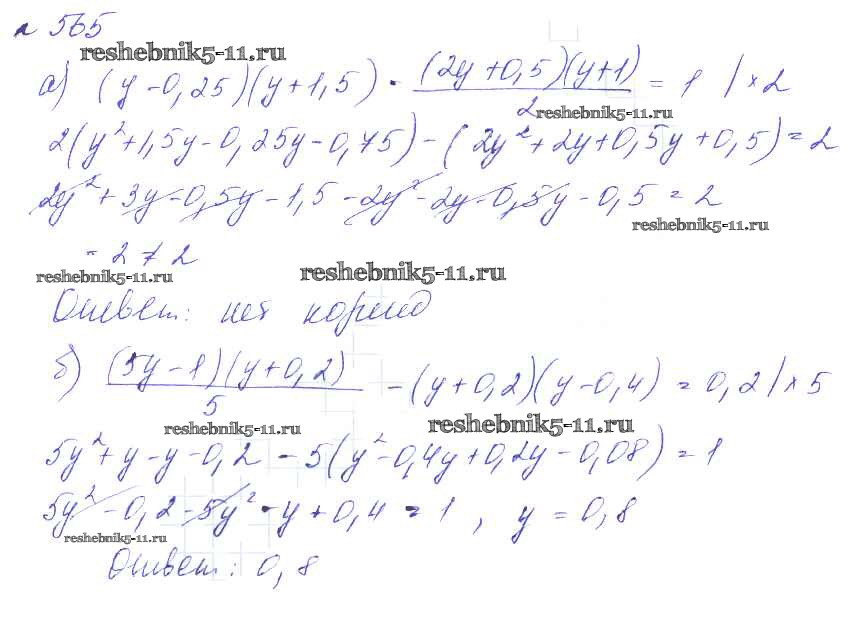 № 565
reshebnik5-11.ru
а) (y-0,25)(y+1,5) - (2y+0,5)(y+1)/2 = 1 |×2
reshebnik5-11.ru
2(y²+1,5y-0,25y-0,75) - (2y²+2y+0,5y+0,5) = 2
2y²+3y-0,5y-1,5-2y²-2y-0,5y-0,5 = 2
reshebnik5-11.ru
-2 ≠ 2
reshebnik5-11.ru reshebnik5-11.ru
Ответ: нет корней
б) (5y-1)(y+0,2)/5 - (y+0,2)(y-0,4) = 0,2 |×5
reshebnik5-11.ru reshebnik5-11.ru
5y²+y-y-0,2 - 5(y²-0,4y+0,2y-0,08) = 1
5y²-0,2-5y²-y+0,4 = 1, y = 0,8
reshebnik5-11.ru
Ответ: 0,8